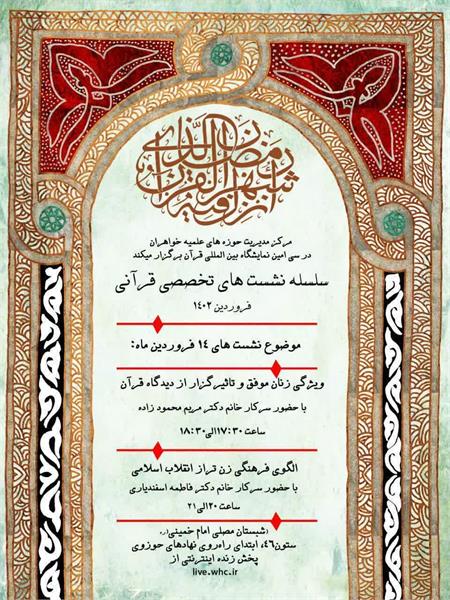 شهر رمضان الذی انزل فیه القرآن
مرکز مدیریت حوزه های علمیه خواهران
در سی امین نمایشگاه بین المللی قرآن برگزار میکند
سلسله نشست های تخصصی قرآنی
فروردین ۱۴۰۲
موضوع نشست های ۱۴ فروردین ماه:
ویژگی زنان موفق و تاثیرگزار از دیدگاه قرآن
با حضور سرکار خانم دکتر مریم محمود زاده
ساعت ۱۷:۳۰ الی ۱۸:۳۰
الگوی فرهنگی زن تراز انقلاب اسلامی
با حضور سرکار خانم دکتر فاطمه اسفندیاری
ساعت ۲۰ الی ۲۱
شبستان مصلی امام خمینی(ره)
ستون۴۶، ابتدای راه‌روی نهادهای حوزوی
پخش زنده اینترنتی از
live.whc.ir